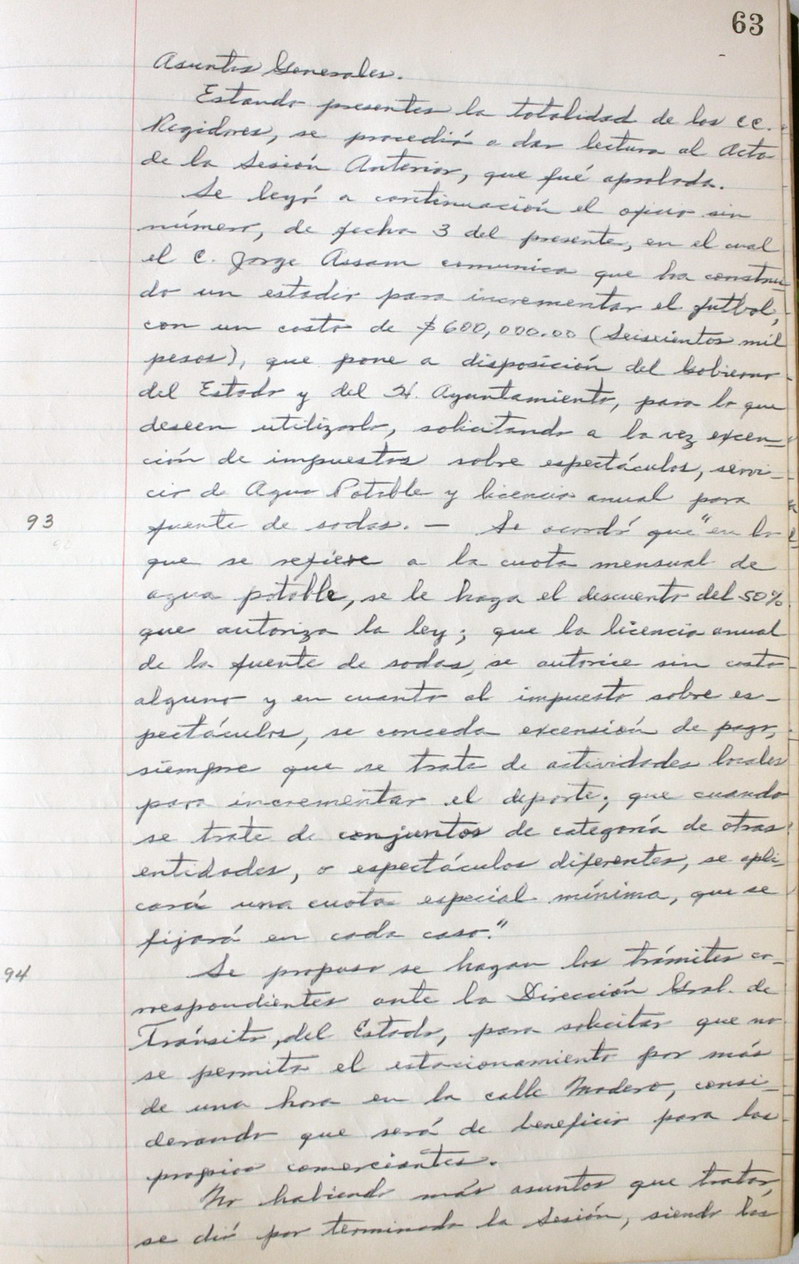 63
Asuntos Generales.
Estando presentes la totalidad de los CC.
Regidores, se procedió a dar lectura al Acta
de la Sesión Anterior, que fué aprobada.
Se leyó a continuación el oficio sin
número, de fecha 3 del presente, en el cual
el C. Jorge Assam comunica que ha construi
do un estadio para incrementar el futbol,
con un costo de $600,000.00 (Seiscientos mil
pesos), que pone a disposición del Gobierno
del Estado y del H. Ayuntamiento, para lo que
deseen utilizarlo, solicitando a la vez excen-
ción de impuestos sobre espectáculos, servi-
cio de Agua Potable y licencia anual para
93 fuente de sodas. — Se acordó que "en lo
que se refiere a la cuota mensual de
agua potable, se le haga el descuento del 50%
que autoriza la ley; que la licencia anual
de la fuente de sodas, se autorice sin costo
alguno y en cuanto al impuesto sobre es-
pectáculos, se conceda excensión de pago,
siempre que se trate de actividades locales
para incrementar el deporte; que cuando
se trate de conjuntos de categoría de otras
entidades, o espectáculos diferentes, se apli-
cará una cuota especial mínima, que se
fijará en cada caso."
94 Se propuso se hagan los trámites co-
rrespondientes ante la Dirección Gral. de
Tránsito, del Estado, para solicitar que no
se permita el estacionamiento por más
de una hora en la calle Madero, consi-
derando que será de beneficio para los
propios comerciantes.
No habiendo más asuntos que tratar,
se dió por terminada la Sesión, siendo las